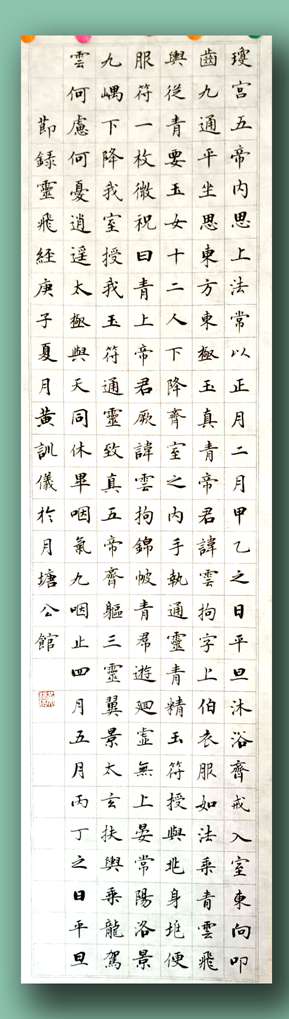 瓊宮五帝內思上法常以正月二月甲乙之日平旦沐浴齊戒入室東向叩
齒九通平坐思東方東極玉真青帝君諱雲拘字上伯衣服如法乘青雲飛
輿從青要玉女十二人下降齊室之內手執通靈青精玉符授與兆身兆便
服符一枚微祝曰青上帝君厥諱雲拘錦帔青帬遊廻虛無上晏常陽洛景
九嵎下降我室授我玉符通靈致真五帝齊軀三靈翼景太玄扶輿乘龍駕
雲何慮何憂逍遥太極與天同休畢咽氣九咽止四月五月丙丁之日平旦
節錄靈飛經庚子夏月黄訓儀於月塘公館